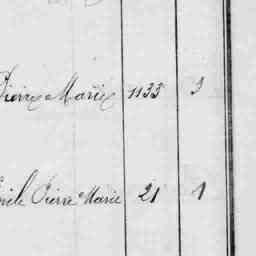 Pierre Marie 1133 3
Pierre Marie 21 1